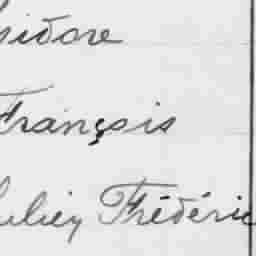 sidore
François
ulien Frédéric